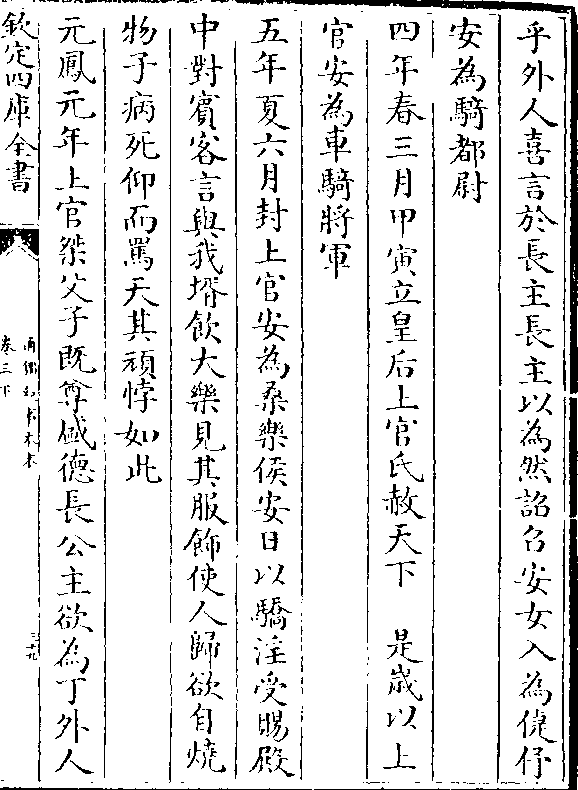 乎外人喜言於長主長主以為然詔召安女入為倢伃
安為騎都尉
四年春三月甲寅立皇后上官氏赦天下　是歲以上
官安為車騎將軍
五年夏六月封上官安為桑樂侯安日以驕淫受賜殿
中對賓客言與我壻飲大樂見其服飾使人歸欲自燒
物子病死仰而罵天其頑悖如此
元鳳元年上官桀父子既尊盛德長公主欲為丁外人
欽定四庫全書
卷三下